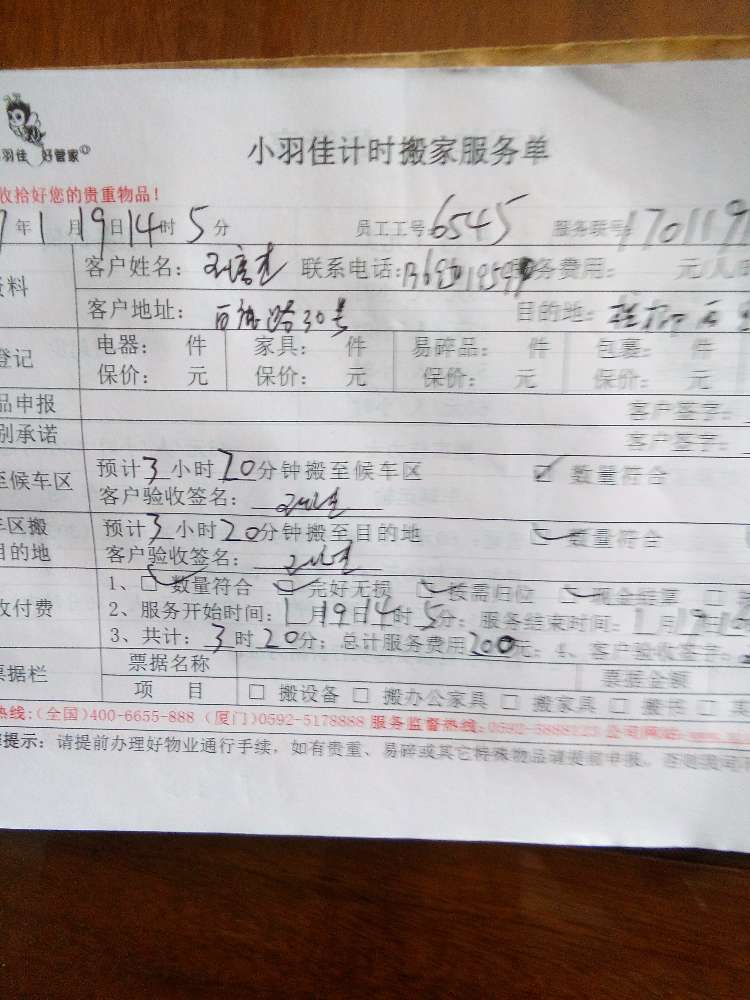 羽佳 好管家
小羽佳计时搬家服务单
收拾好您的贵重物品！
7年1月19日14时5分 员工工号:6545 服务联号:170119
资料 客户姓名： 联系电话: 务费用： 元/人
客户地址： 30号 目的地：
登记 电器： 件 家具： 件 易碎品： 件 包裹： 件
保价： 元 保价： 元 保价： 元 保价： 元
品申报 客户签字：
别承诺 客户签字：
至候车区 预计3小时20分钟搬至候车区 数量符合
客户验收签名：
车区搬 预计3小时20分钟搬至目的地 数量符合
目的地 客户验收签名：
收付费 1、 数量符合 完好无损 按需归位 现金结算
2、服务开始时间：1月19日14时5分；服务结束时间：1月
3、共计：3时20分；总计服务费用200元；4、客户验收签字：
票据栏 票据名称 票据金额
项 目 □ 搬设备 □ 搬办公家具 □ 搬家具 □ 搬书 □
热线:(全国)400-6655-888 (厦门)0592-5178888 服务监督热线:0592-5888123 公司网站:
提示：请提前办理好物业通行手续，如有贵重、易碎或其它特殊物品请提前申报，否则我司